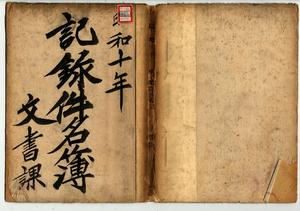 昭和十年
記録件名簿
文書課